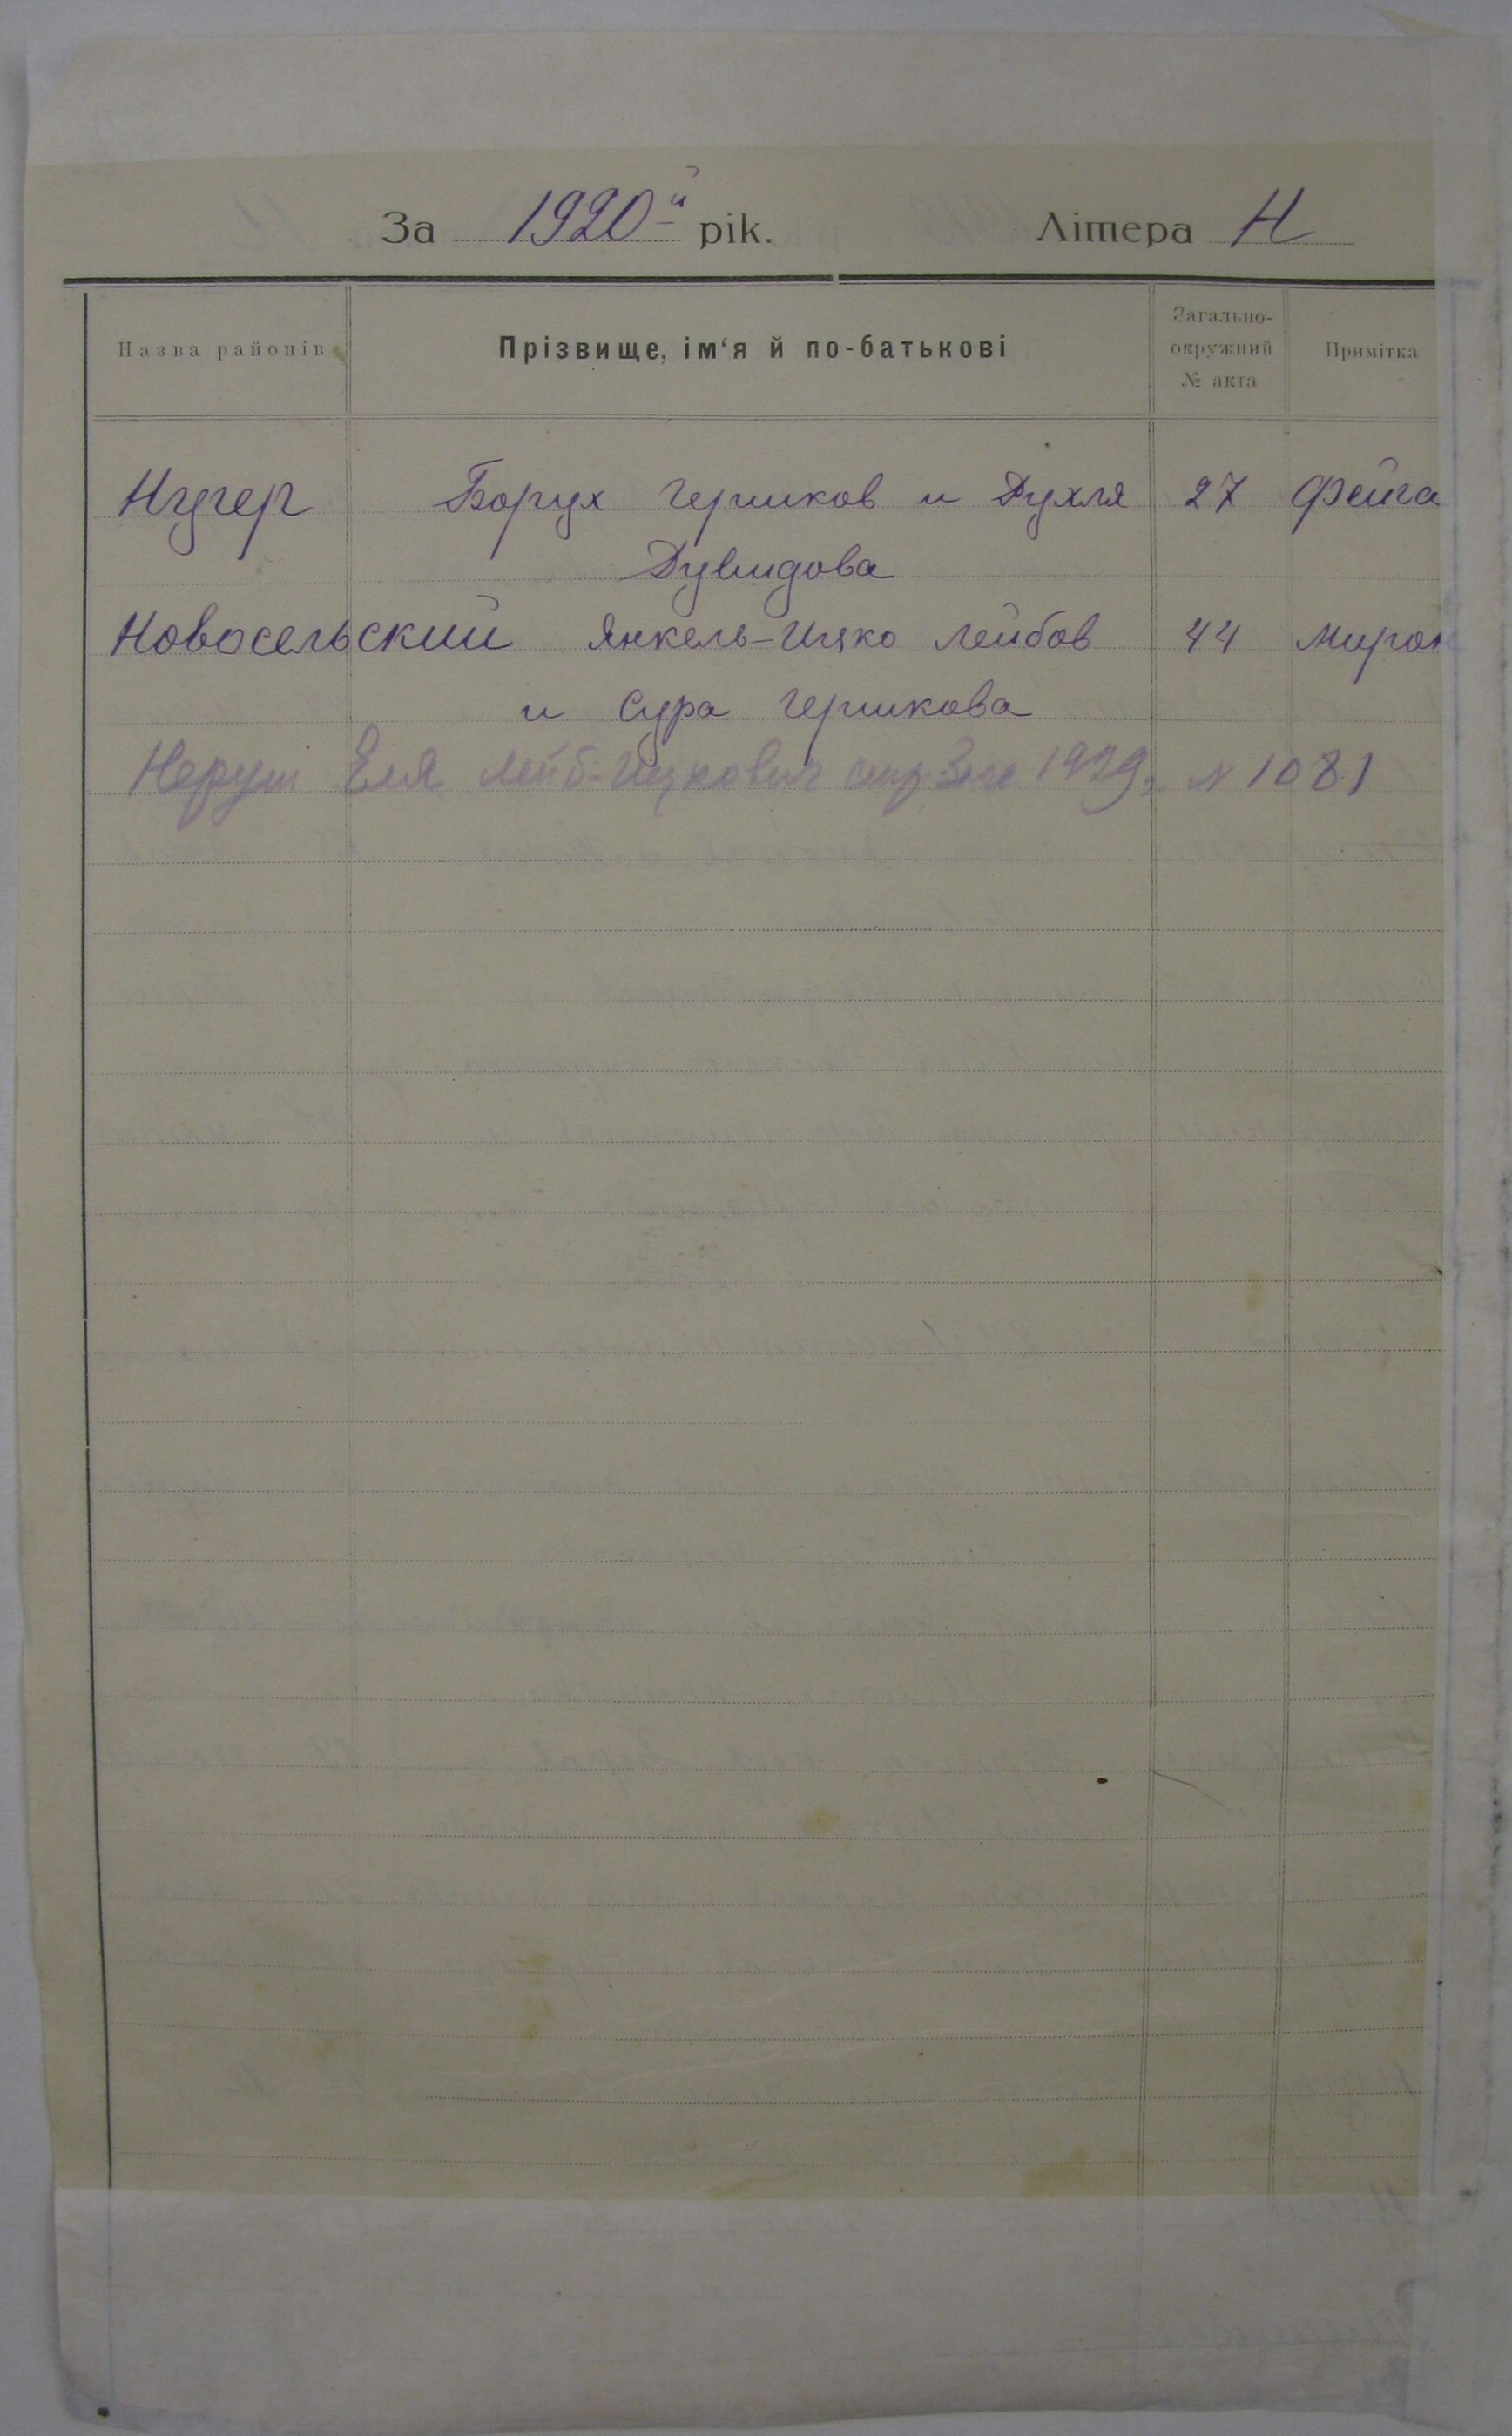 За 1920й рік. Літера Н
Назва районів Прізвище, ім‘я й по-батькові Загально-окружний № акта Примітка
Нугер Борух Гершков и Рухля 27 Фейга
Дувидова
Новосельский Янкель-Ицко Лейбов 44 Мирон
и Сура Гершкова
Неруш Еля Лейб-Ицкович 1929 N 1081